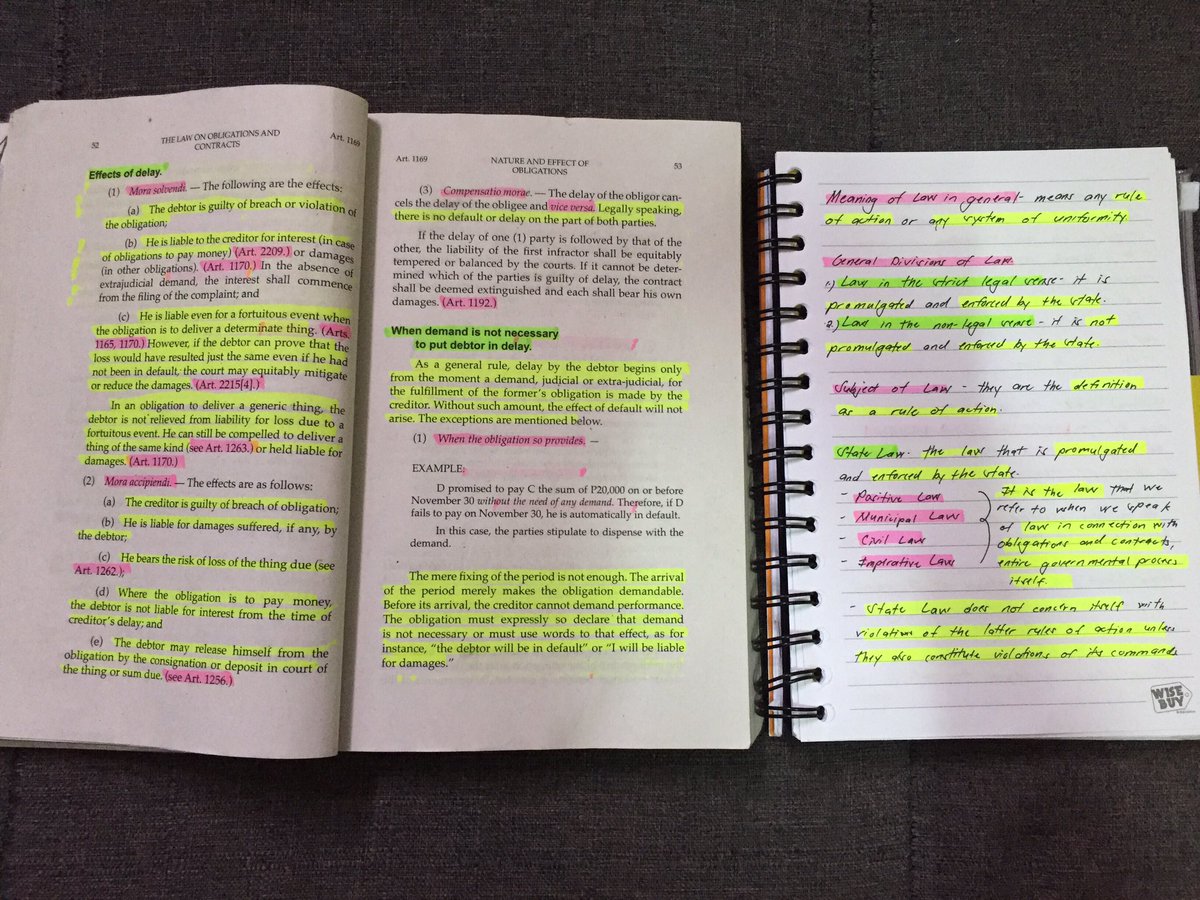 52
THE LAW ON OBLIGATIONS AND
CONTRACTS
Art. 1169
Effects of delay.
(1) Mora solvendi. — The following are the effects:
(a) The debtor is guilty of breach or violation of
the obligation;
(b) He is liable to the creditor for interest (in case
of obligations to pay money) (Art. 2209.) or damages
(in other obligations). (Art. 1170.) In the absence of
extrajudicial demand, the interest shall commence
from the filing of the complaint; and
(c) He is liable even for a fortuitous event when
the obligation is to deliver a determinate thing. (Arts.
1165, 1170.) However, if the debtor can prove that the
loss would have resulted just the same even if he had
not been in default, the court may equitably mitigate
or reduce the damages. (Art. 2215[4].)
In an obligation to deliver a generic thing, the
debtor is not relieved from liability for loss due to a
fortuitous event. He can still be compelled to deliver a
thing of the same kind (see Art. 1263.) or held liable for
damages. (Art. 1170.)
(2) Mora accipiendi. — The effects are as follows:
(a) The creditor is guilty of breach of obligation;
(b) He is liable for damages suffered, if any, by
the debtor;
(c) He bears the risk of loss of the thing due (see
Art. 1262.);
(d) Where the obligation is to pay money,
the debtor is not liable for interest from the time of
creditor's delay; and
(e) The debtor may release himself from the
obligation by the consignation or deposit in court of
the thing or sum due. (see Art. 1256.)
Art. 1169
NATURE AND EFFECT OF
OBLIGATIONS
53
(3) Compensatio morae. — The delay of the obligor can-
cels the delay of the obligee and vice versa. Legally speaking,
there is no default or delay on the part of both parties.
If the delay of one (1) party is followed by that of the
other, the liability of the first infractor shall be equitably
tempered or balanced by the courts. If it cannot be deter-
mined which of the parties is guilty of delay, the contract
shall be deemed extinguished and each shall bear his own
damages. (Art. 1192.)
When demand is not necessary
to put debtor in delay.
As a general rule, delay by the debtor begins only
from the moment a demand, judicial or extra-judicial, for
the fulfillment of the former's obligation is made by the
creditor. Without such amount, the effect of default will not
arise. The exceptions are mentioned below.
(1) When the obligation so provides. —
EXAMPLE:
D promised to pay C the sum of P20,000 on or before
November 30 without the need of any demand. Therefore, if D
fails to pay on November 30, he is automatically in default.
In this case, the parties stipulate to dispense with the
demand.
The mere fixing of the period is not enough. The arrival
of the period merely makes the obligation demandable.
Before its arrival, the creditor cannot demand performance.
The obligation must expressly so declare that demand
is not necessary or must use words to that effect, as for
instance, "the debtor will be in default" or "I will be liable
for damages."
Meaning of Law in general - means any rule
of action or any system of uniformity.
General Divisions of Law
1.) Law in the strict legal sense - it is
promulgated and enforced by the state.
2.) Law in the non-legal sense - it is not
promulgated and enforced by the state.
Subject of Law - they are the definition
as a rule of action.
State Law - the law that is promulgated
and enforced by the state.
- Positive Law
- Municipal Law
- Civil Law
- Imperative Law
It is the law that we
refer to when we speak
of law in connection with
obligations and contracts,
entire governmental process
itself.
- State Law does not concern itself with
violation of the latter rules of action unless
they also constitute violations of its commands
WISE
BUY